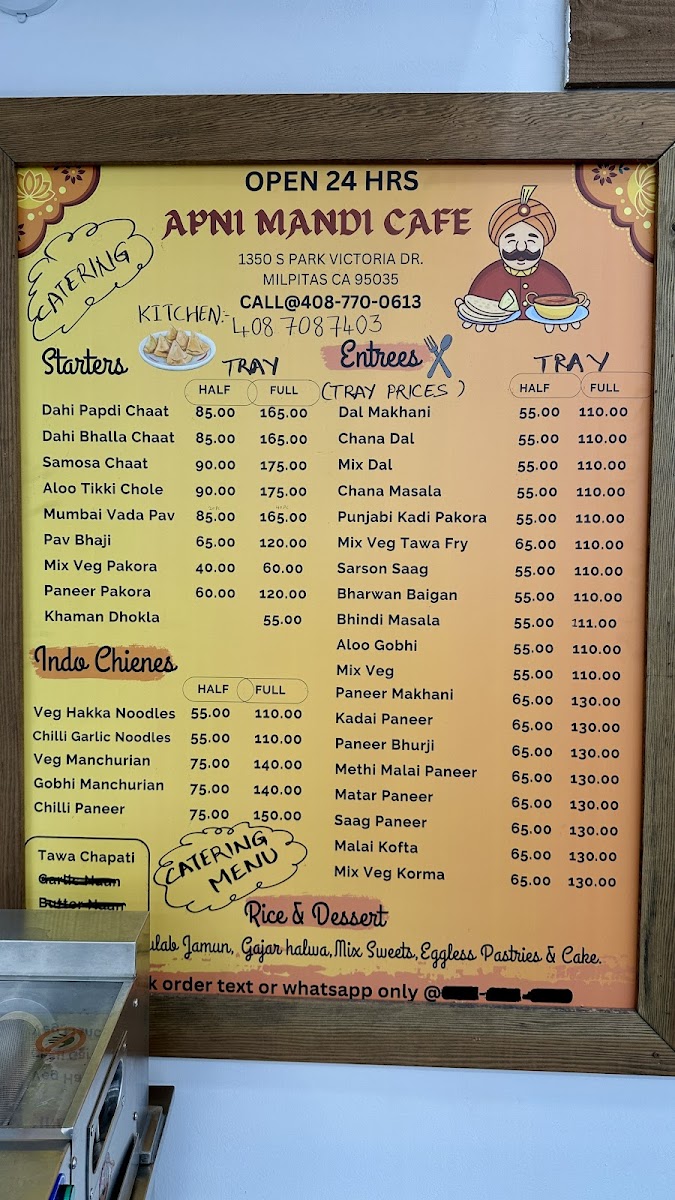 OPEN 24 HRS
APNI MANDI CAFE
1350 S PARK VICTORIA DR.
MILPITAS CA 95035
CALL@408-770-0613
CATERING
KITCHEN:- 408 7087403
Starters
TRAY
HALF FULL
Dahi Papdi Chaat 85.00 165.00
Dahi Bhalla Chaat 85.00 165.00
Samosa Chaat 90.00 175.00
Aloo Tikki Chole 90.00 175.00
Mumbai Vada Pav 85.00 165.00
Pav Bhaji 65.00 120.00
Mix Veg Pakora 40.00 60.00
Paneer Pakora 60.00 120.00
Khaman Dhokla 55.00
Indo Chienes
HALF FULL
Veg Hakka Noodles 55.00 110.00
Chilli Garlic Noodles 55.00 110.00
Veg Manchurian 75.00 140.00
Gobhi Manchurian 75.00 140.00
Chilli Paneer 75.00 150.00
Tawa Chapati
Garlic Naan
Butter Naan
CATERING
MENU
Entrees
TRAY
(TRAY PRICES)
HALF FULL
Dal Makhani 55.00 110.00
Chana Dal 55.00 110.00
Mix Dal 55.00 110.00
Chana Masala 55.00 110.00
Punjabi Kadi Pakora 55.00 110.00
Mix Veg Tawa Fry 65.00 110.00
Sarson Saag 55.00 110.00
Bharwan Baigan 55.00 110.00
Bhindi Masala 55.00 111.00
Aloo Gobhi 55.00 110.00
Mix Veg 55.00 110.00
Paneer Makhani 65.00 130.00
Kadai Paneer 65.00 130.00
Paneer Bhurji 65.00 130.00
Methi Malai Paneer 65.00 130.00
Matar Paneer 65.00 130.00
Saag Paneer 65.00 130.00
Malai Kofta 65.00 130.00
Mix Veg Korma 65.00 130.00
Rice & Dessert
ulab Jamun, Gajar halwa, Mix Sweets, Eggless Pastries & Cake.
k order text or whatsapp only @